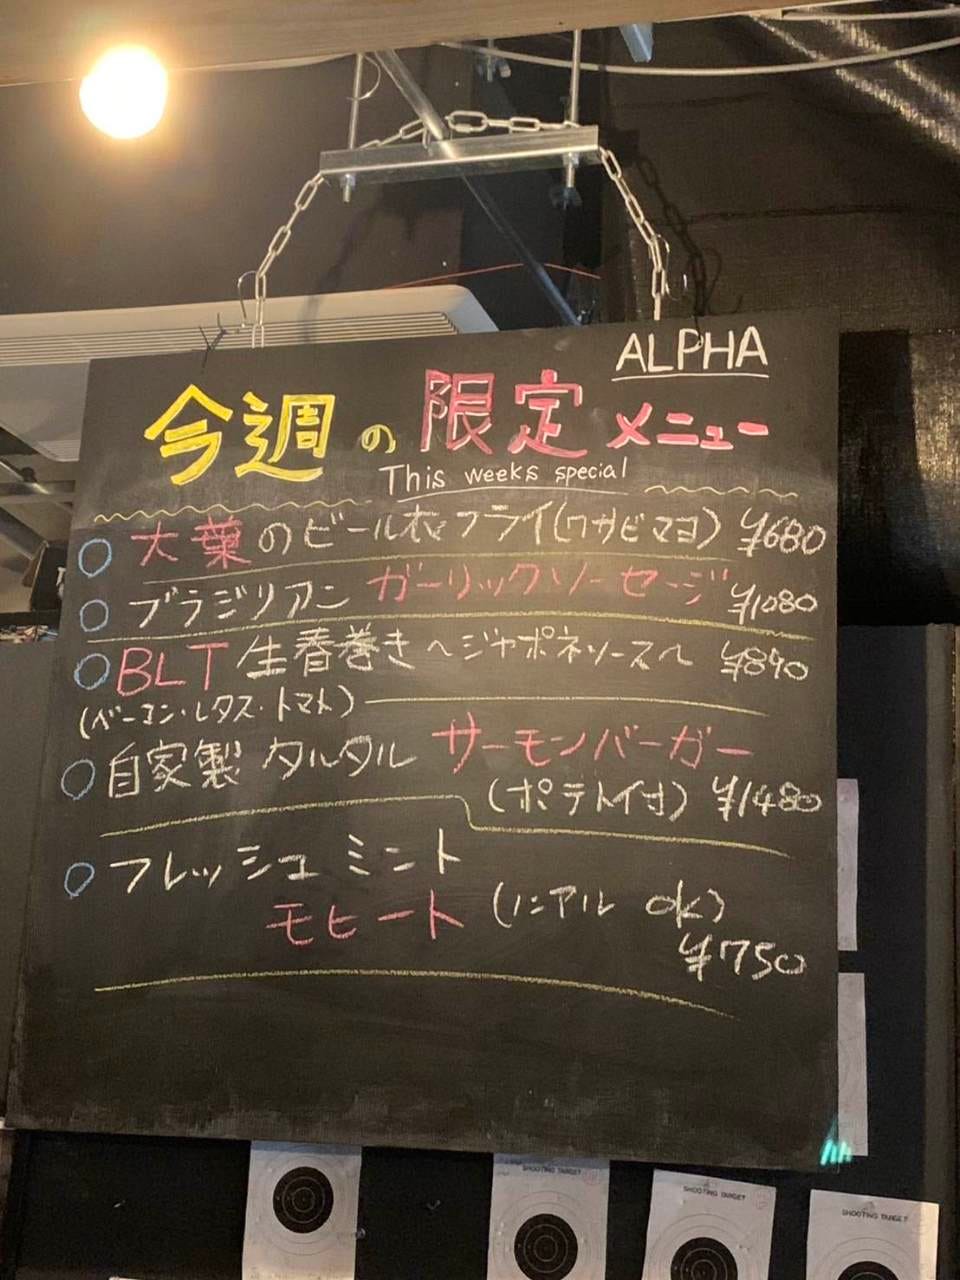 ALPHA
今週の限定メニュー
This weeks special
大葉のビール衣フライ(ワサビマヨ) ¥680
ブラジリアン ガーリックソーセージ ¥1080
BLT 生春巻き〜ジャポネソース〜 ¥890
(ベーコン・レタス・トマト)
自家製 タルタル サーモンバーガー
(ポテト付) ¥1480
フレッシュ ミント
モヒート (ノンアル ok)
¥750
SHOOTING TARGET
SHOOTING TARGET
SHOOTING TARGET